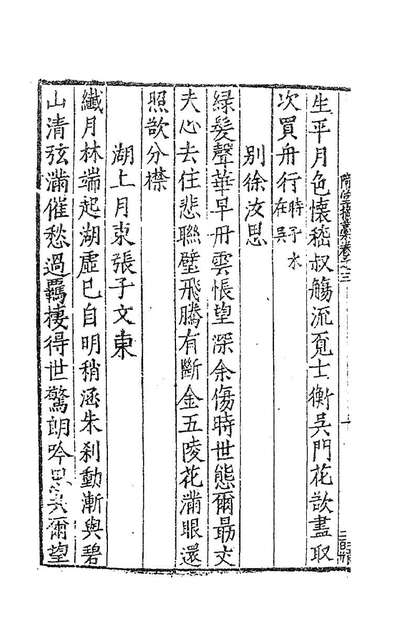 生平月色懷嵇叔觴流覓士衡吳門花欲盡取
次買舟行時予水在吳
別徐汝思
綠髮聲華早丹雲悵望深余傷時世態爾最丈
夫心去住悲聯璧飛騰有斷金五陵花滿眼還
照欲分襟
湖上月束張子文東
纖月林端起湖虛已自明稍涵朱刹動漸與碧
山清弦滿催愁過羈棲得世驚朗吟思共爾望